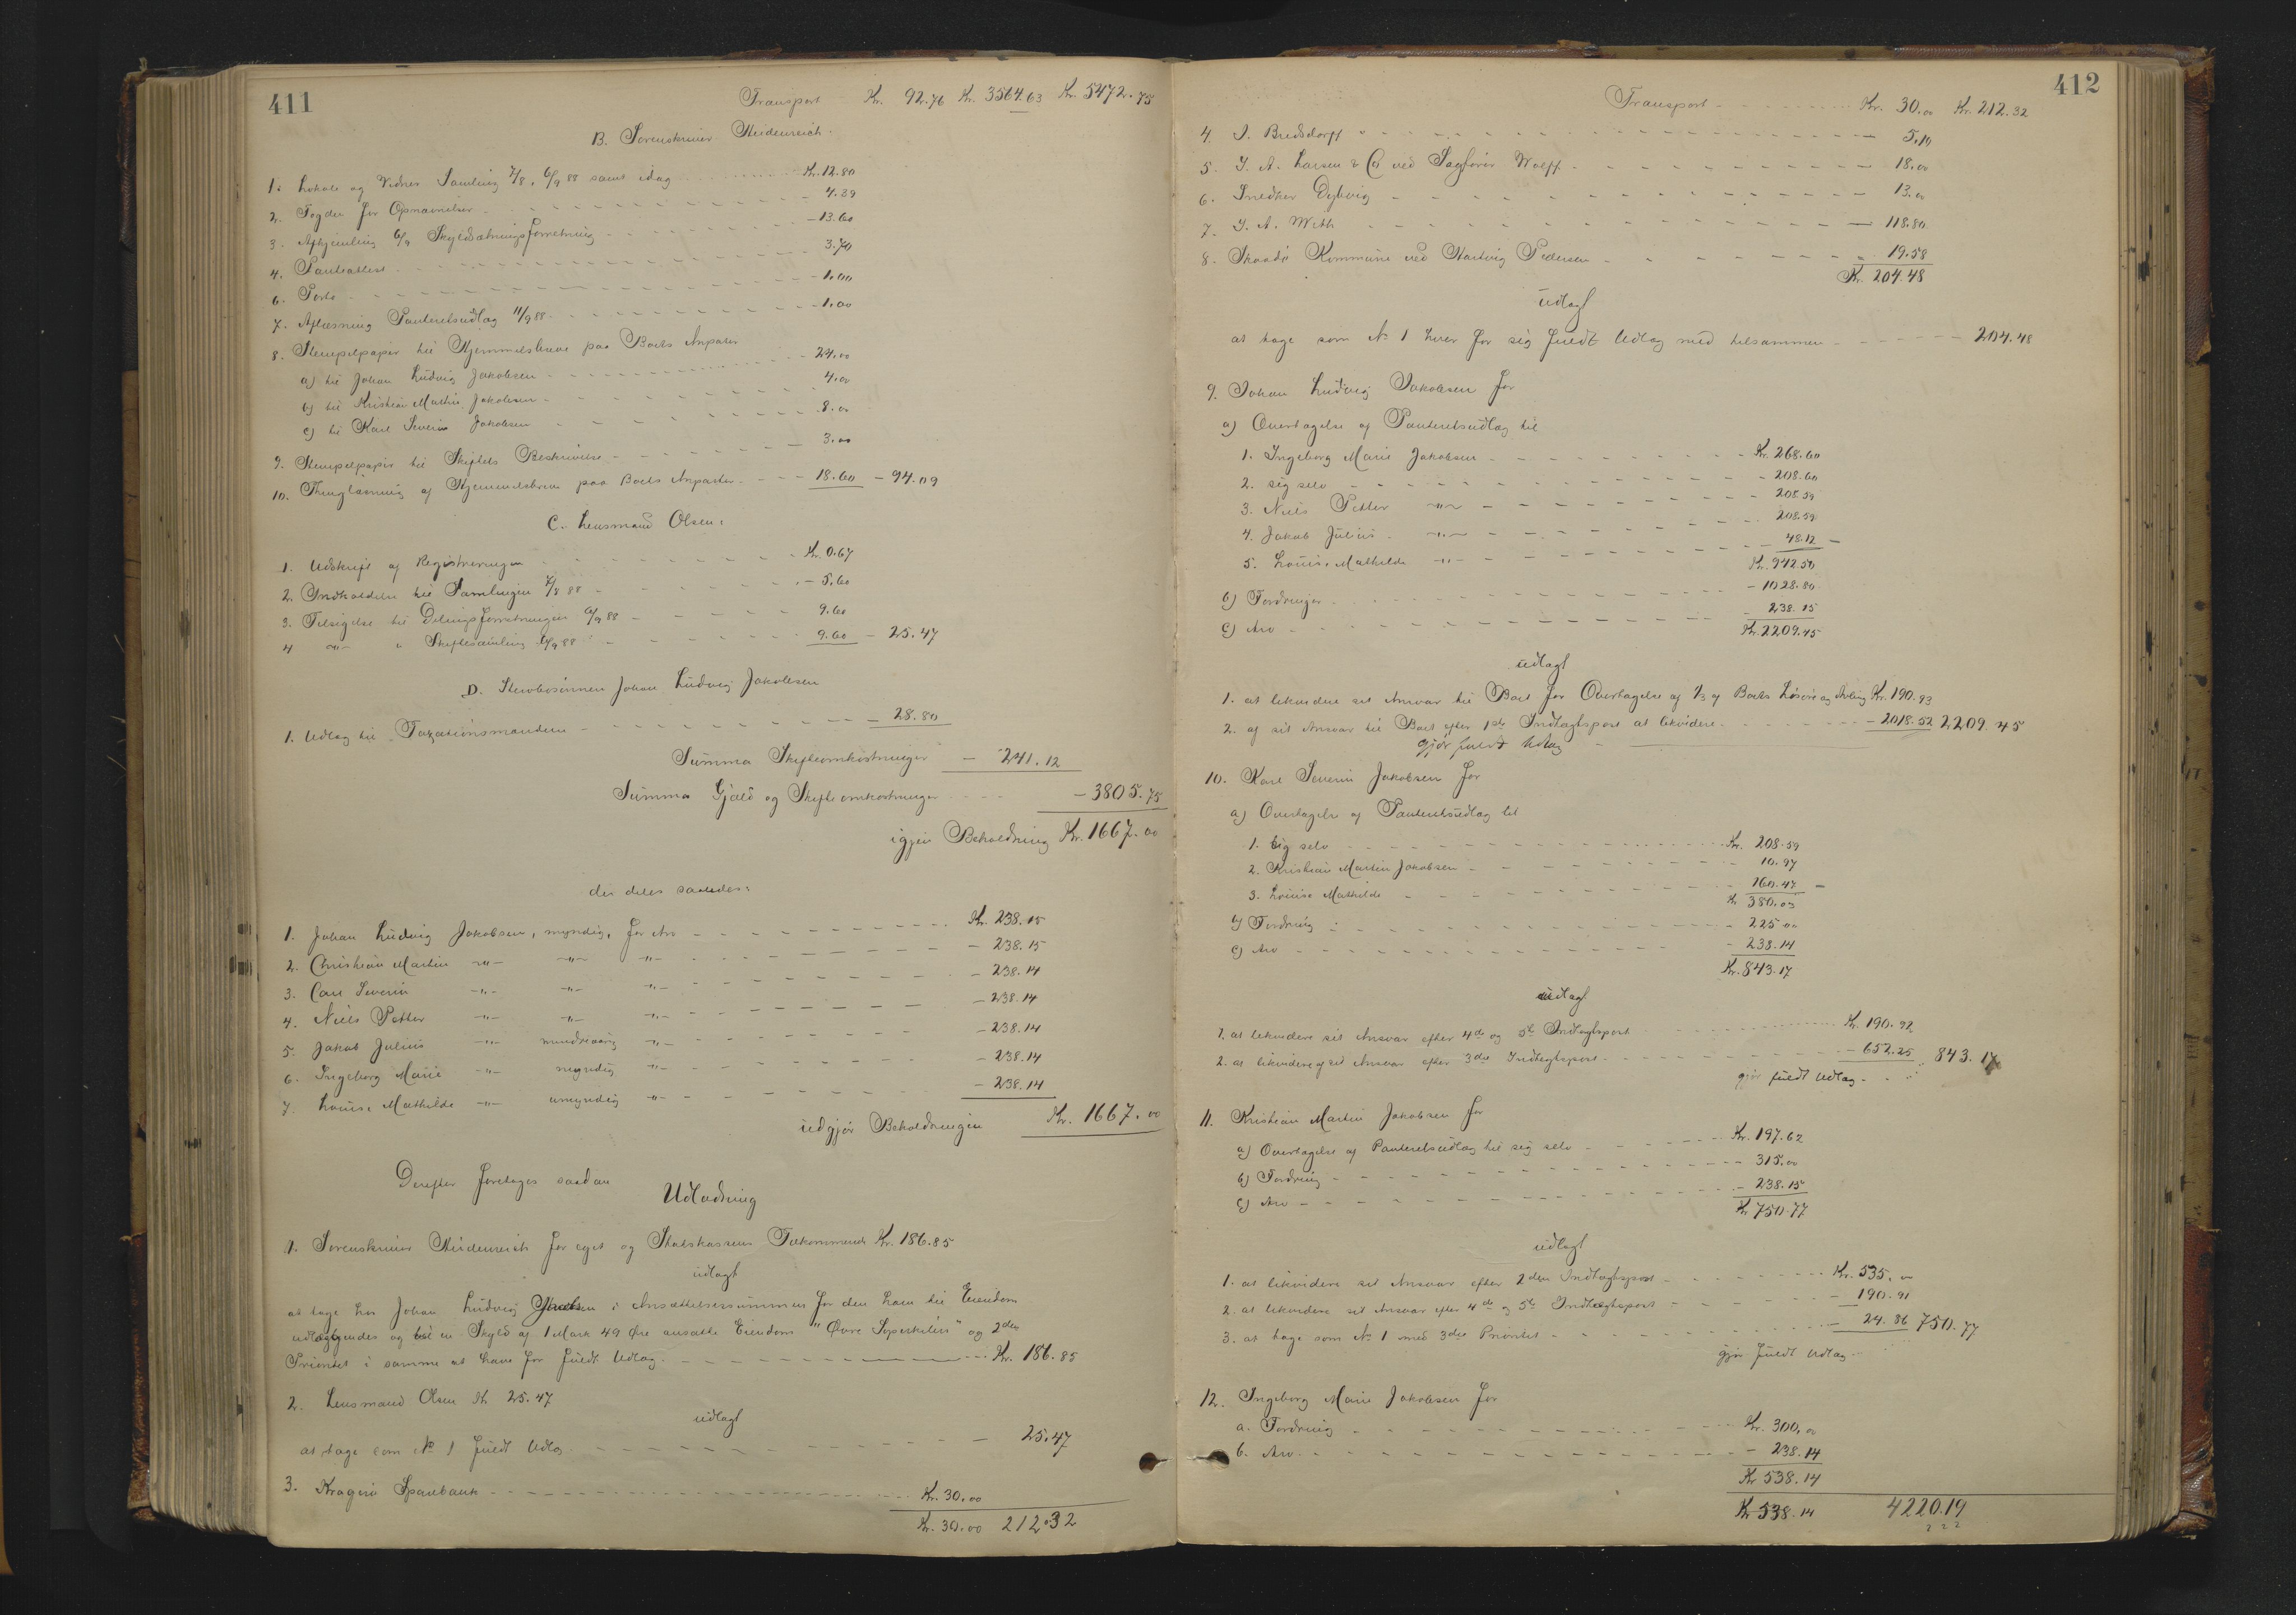 411
Transport Kr. 92.76 Kr. 3564.63 Kr. 5472.75
B. Sorenskriver Heidenreich.
1. Lokale og Vidner Samling 7/8, 6/9 88 samt idag Kr. 12.80
2. Fogden for Opnævnelser - 4.39
3. Afhjemling 6/9 Skyldsætningsforretning - 13.60
4. Panteattest 3.70
6. Porto - 1.00
7. Aflæsning Panteretsudlæg 11/9 88 - 1.00
8. Stempelpapir til Hjemmelsbreve paa Boets Anparter
a) til Johan Ludvig Jakobsen - 24.00
b) til Kristian Martin Jakobsen - 4.00
c) til Karl Severin Jakobsen 8.00
9. Stempelpapir til Skiftets Beskrivelse - 3.00
10. Thinglæsning af Hjemmelsbreve paa Boets Anparter - 18.60 - 94.09
C. Lensmand Olsen:
1. Udskrift af Registreringen - Kr. 0.67
2. Indkaldelse til Samlingen 7/8 88 - 5.60
3. Tilsigelse til Delingsforretningen 6/9 88 - 9.60
4 -"- " Skiftesamling 6/9 88 - 9.60 - 25.47
D. Sterbosønnen Johan Ludvig Jakobsen
1. Udlæg til Taxationsmændene - 28.80
Summa Skifteomkostninger - 241.12
Summa Gjæld og Skifteomkostninger - 3805.75
igjen Beholdning Kr. 1667.00
der deles saaledes:
1. Johan Ludvig Jakobsen, myndig, for Arv - Kr. 238.15
2. Christian Martin -"- -"- -"- - 238.15
3. Carl Severin -"- -"- -"- - 238.14
4. Niels Petter -"- -"- -"- - 238.14
5. Jakob Julius -"- mindreaarig -"- - 238.14
6. Ingeborg Marie -"- myndig -"- - 238.14
7. Louise Mathilde -"- umyndig -"- - 238.14
udgjør Beholdningen Kr. 1667.00
Derefter foretages saadan
Udlodning
1. Sorenskriver Heidenreich for eget og Statskassens Tilkommende Kr. 186.85
udlagt
at tage hos Johan Ludvig Jakobsen i Ansættelsessummen for den ham til Eiendom
udlæggendes og til en Skyld af 1 Mark 49 Øre ansatte Eiendom " Øvre " og 2den
Prioritet i samme at have for fuldt Udlæg - Kr. 186.85
2. Lensmand Olsen Kr 25.47
udlagt
at tage som No 1 fuldt Udlæg - 25.47
3. Kragerø Sparebank - Kr. 30.00
Kr. 30.00 212.32
412
Transport - Kr. 30.00 Kr. 212.32
4. J. Bredsdorff - 5.10
5. J. A. Larsen & Co ved Sagfører Wolff - 18.00
6. Snedker Dybvig - 13.00
7. J. A. With - 118.80
8. Skaadø Kommune ved Hartvig Pedersen - 19.58
Kr. 204.48
udlagt
at tage som No 1 hver for sig fuldt Udlæg med tilsammen - 204.48
9. Johan Ludvig Jakobsen for
a) Overtagelse af Panteretsudlæg til
1. Ingeborg Marie Jakobsen - Kr. 268.60
2. sig selv - 208.60
3. Niels Petter -"- - 208.59
4. Jakob Julius -"- - 208.59
5. Louise Mathilde -"- - 48.12 -
Kr. 942.50
b) Fordringer - 1028.80
c) Arv - 238.15
Kr. 2209.45
udlagt
1. at likvidere sit Ansvar til Boet for Overtagelse af 1/3 af Boets Løsøre og Avling Kr. 190.93
2. af sit Ansvar til Boet efter 1ste Indtægtspost at likvidere - 2018.52 2209.45
gjør fuldt Udlæg
10. Karl Severin Jakobsen for
a) Overtagelse af Panteretsudlæg til
1. sig selv - Kr. 208.59
2. Kristian Martin Jakobsen - 10.97
3. Louise Mathilde - 160.47 -
Kr 380.03
b) Fordring - 225.00
c) Arv - 238.14
Kr. 843.17
udlagt
1. at likvidere sit Ansvar efter 4de og 5te Indtægtspost Kr. 190.92
2. at likvidere af sit Ansvar efter 3die Indtægtspost - 652.25 843.17
gjør fuldt Udlæg -
11. Kristian Martin Jakobsen for
a) Overtagelse af Panteretsudlæg til sig selv - Kr. 197.62
b) Fordring - 315.00
c) Arv - 238.15
Kr 750.77
udlagt
1. at likvidere sit Ansvar efter 2den Indtægtspost - Kr. 535.00
2. at likvidere sit Ansvar efter 4de og 5te Indtægtspost - 190.91
3. at tage som No 1 med 3die Prioritet - 24.86 750.77
gjør fuldt Udlæg -
12. Ingeborg Marie Jakobsen for
a. Fordring - Kr. 300.00
b. Arv - 238.14
Kr 538.14
Kr 538.14 4220.19
2 2 2